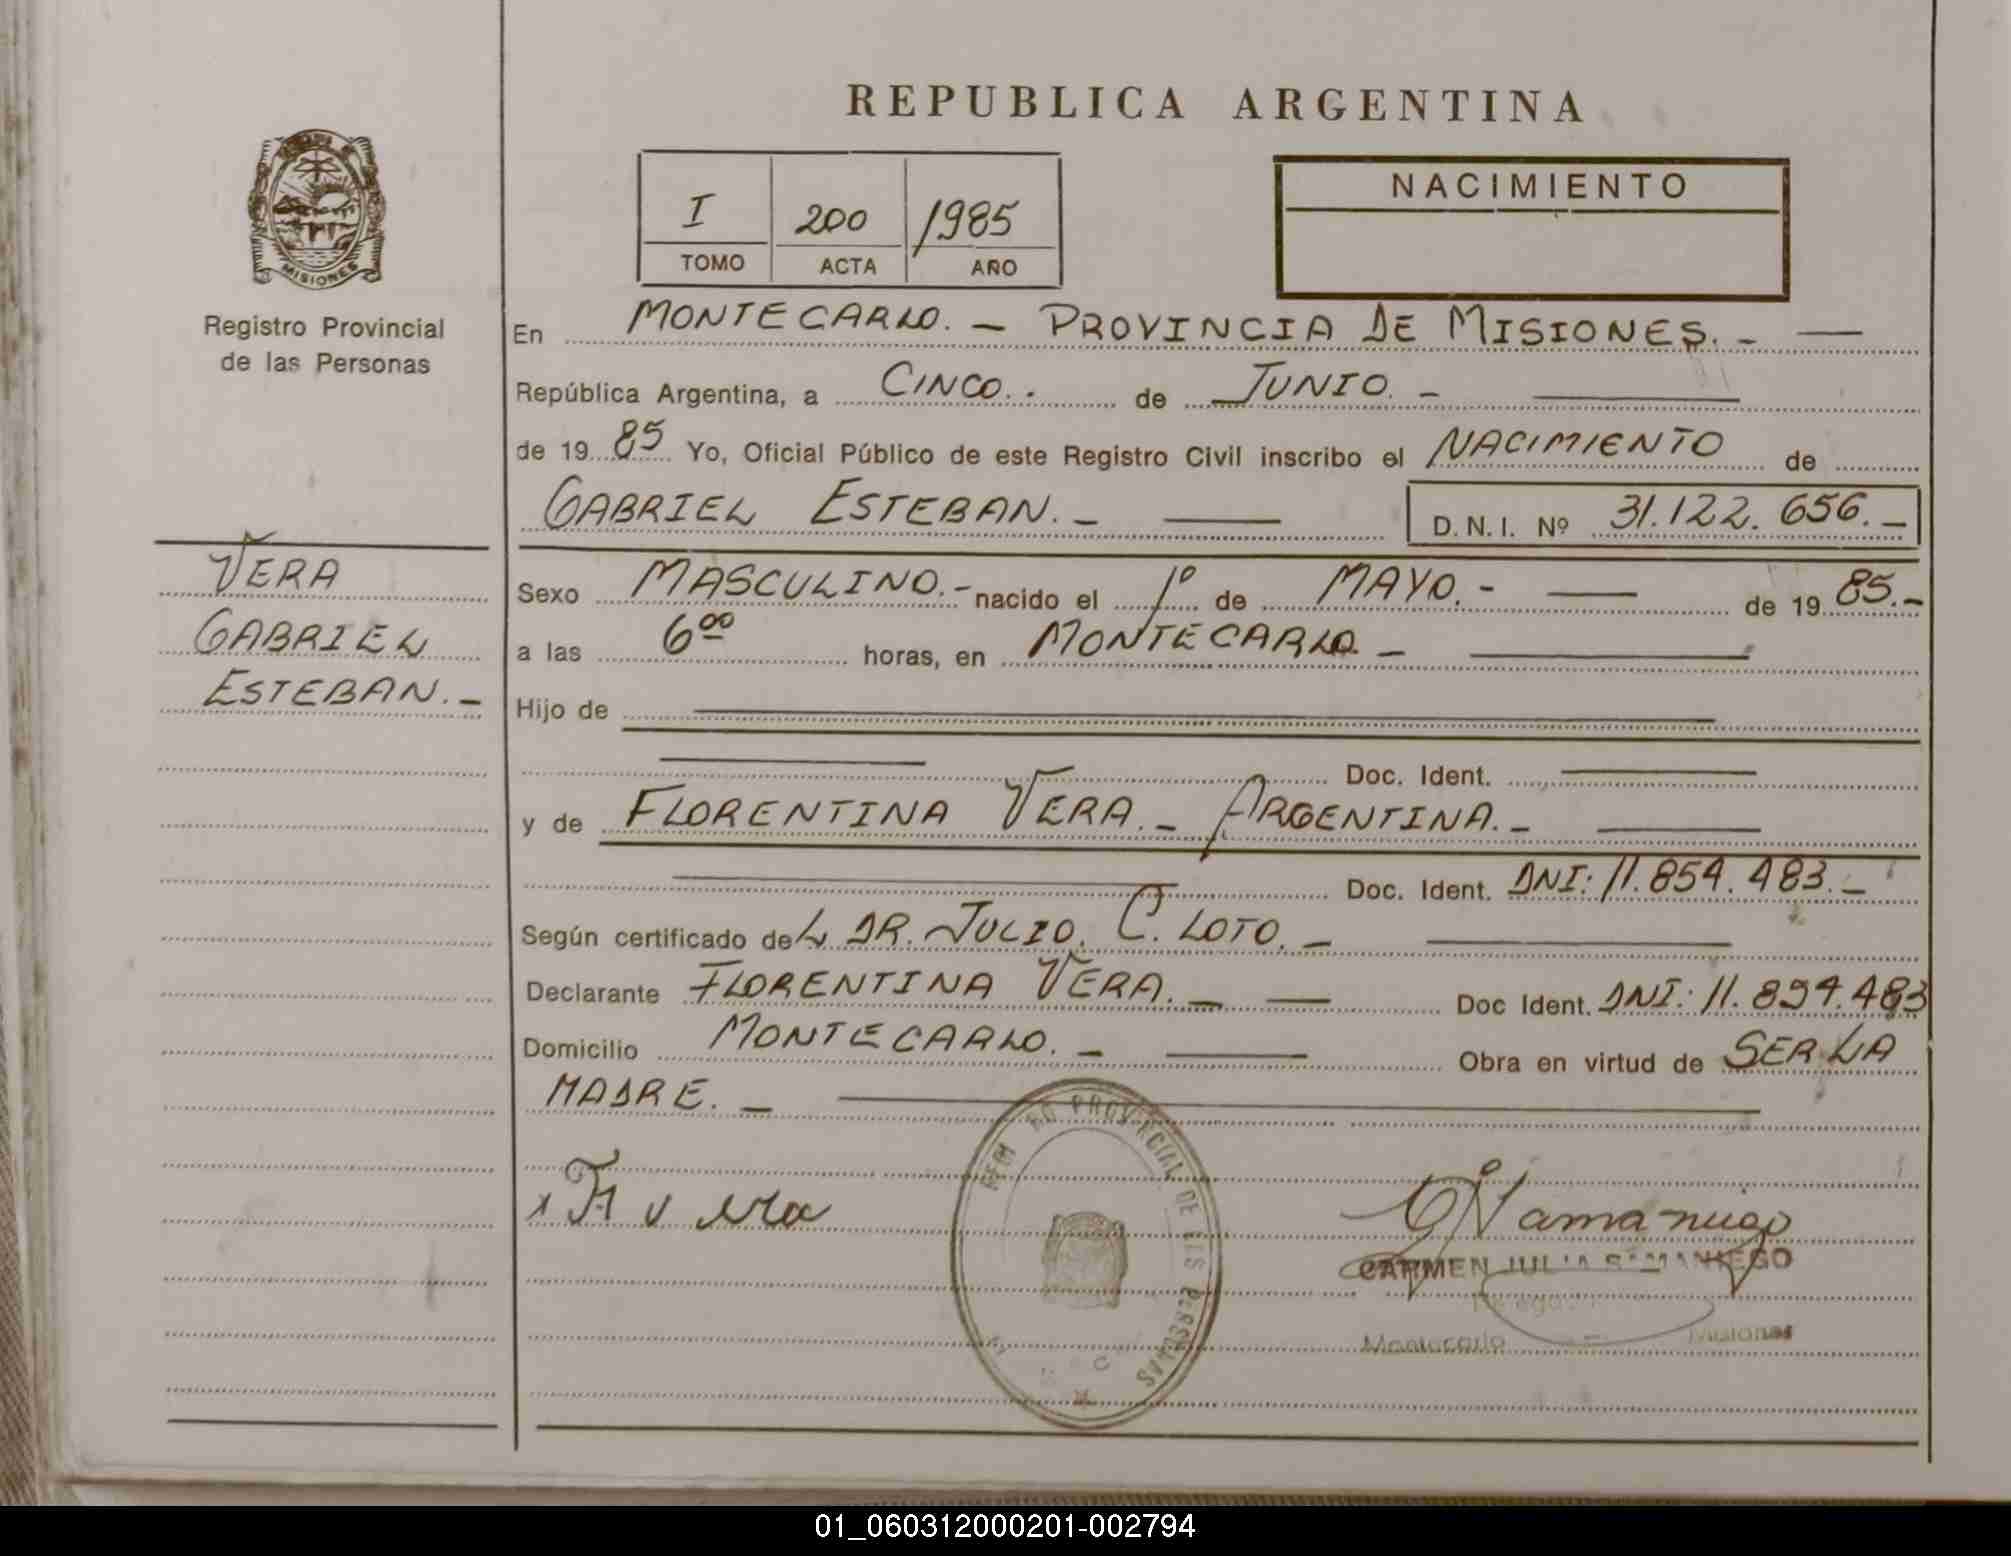 REPUBLICA ARGENTINA
MISIONES
Registro Provincial
de las Personas
I 200 1985
TOMO ACTA AÑO
NACIMIENTO
En MONTECARLO. — PROVINCIA DE MISIONES. -
República Argentina, a CINCO. . de JUNIO. -
de 19 85 Yo, Oficial Público de este Registro Civil inscribo el NACIMIENTO de
GABRIEL ESTEBAN. - D.N.I. Nº 31.122.656. -
VERA
GABRIEL
ESTEBAN. -
Sexo MASCULINO. - nacido el 1º de MAYO. - de 19 85. -
a las 6 00 horas, en MONTECARLO. -
Hijo de
Doc. Ident.
y de FLORENTINA VERA. - ARGENTINA. -
Doc. Ident. DNI: 11.854.483. -
Según certificado del DR. JULIO. C. LOTO. -
Declarante FLORENTINA VERA. - Doc Ident. DNI: 11.854.483
Domicilio MONTECARLO. - Obra en virtud de SER LA
MADRE. -
PROVINCIAL DE LAS PERSONAS
CARMEN JULIA SAMANIEGO
Montecarlo Misiones
01_060312000201-002794